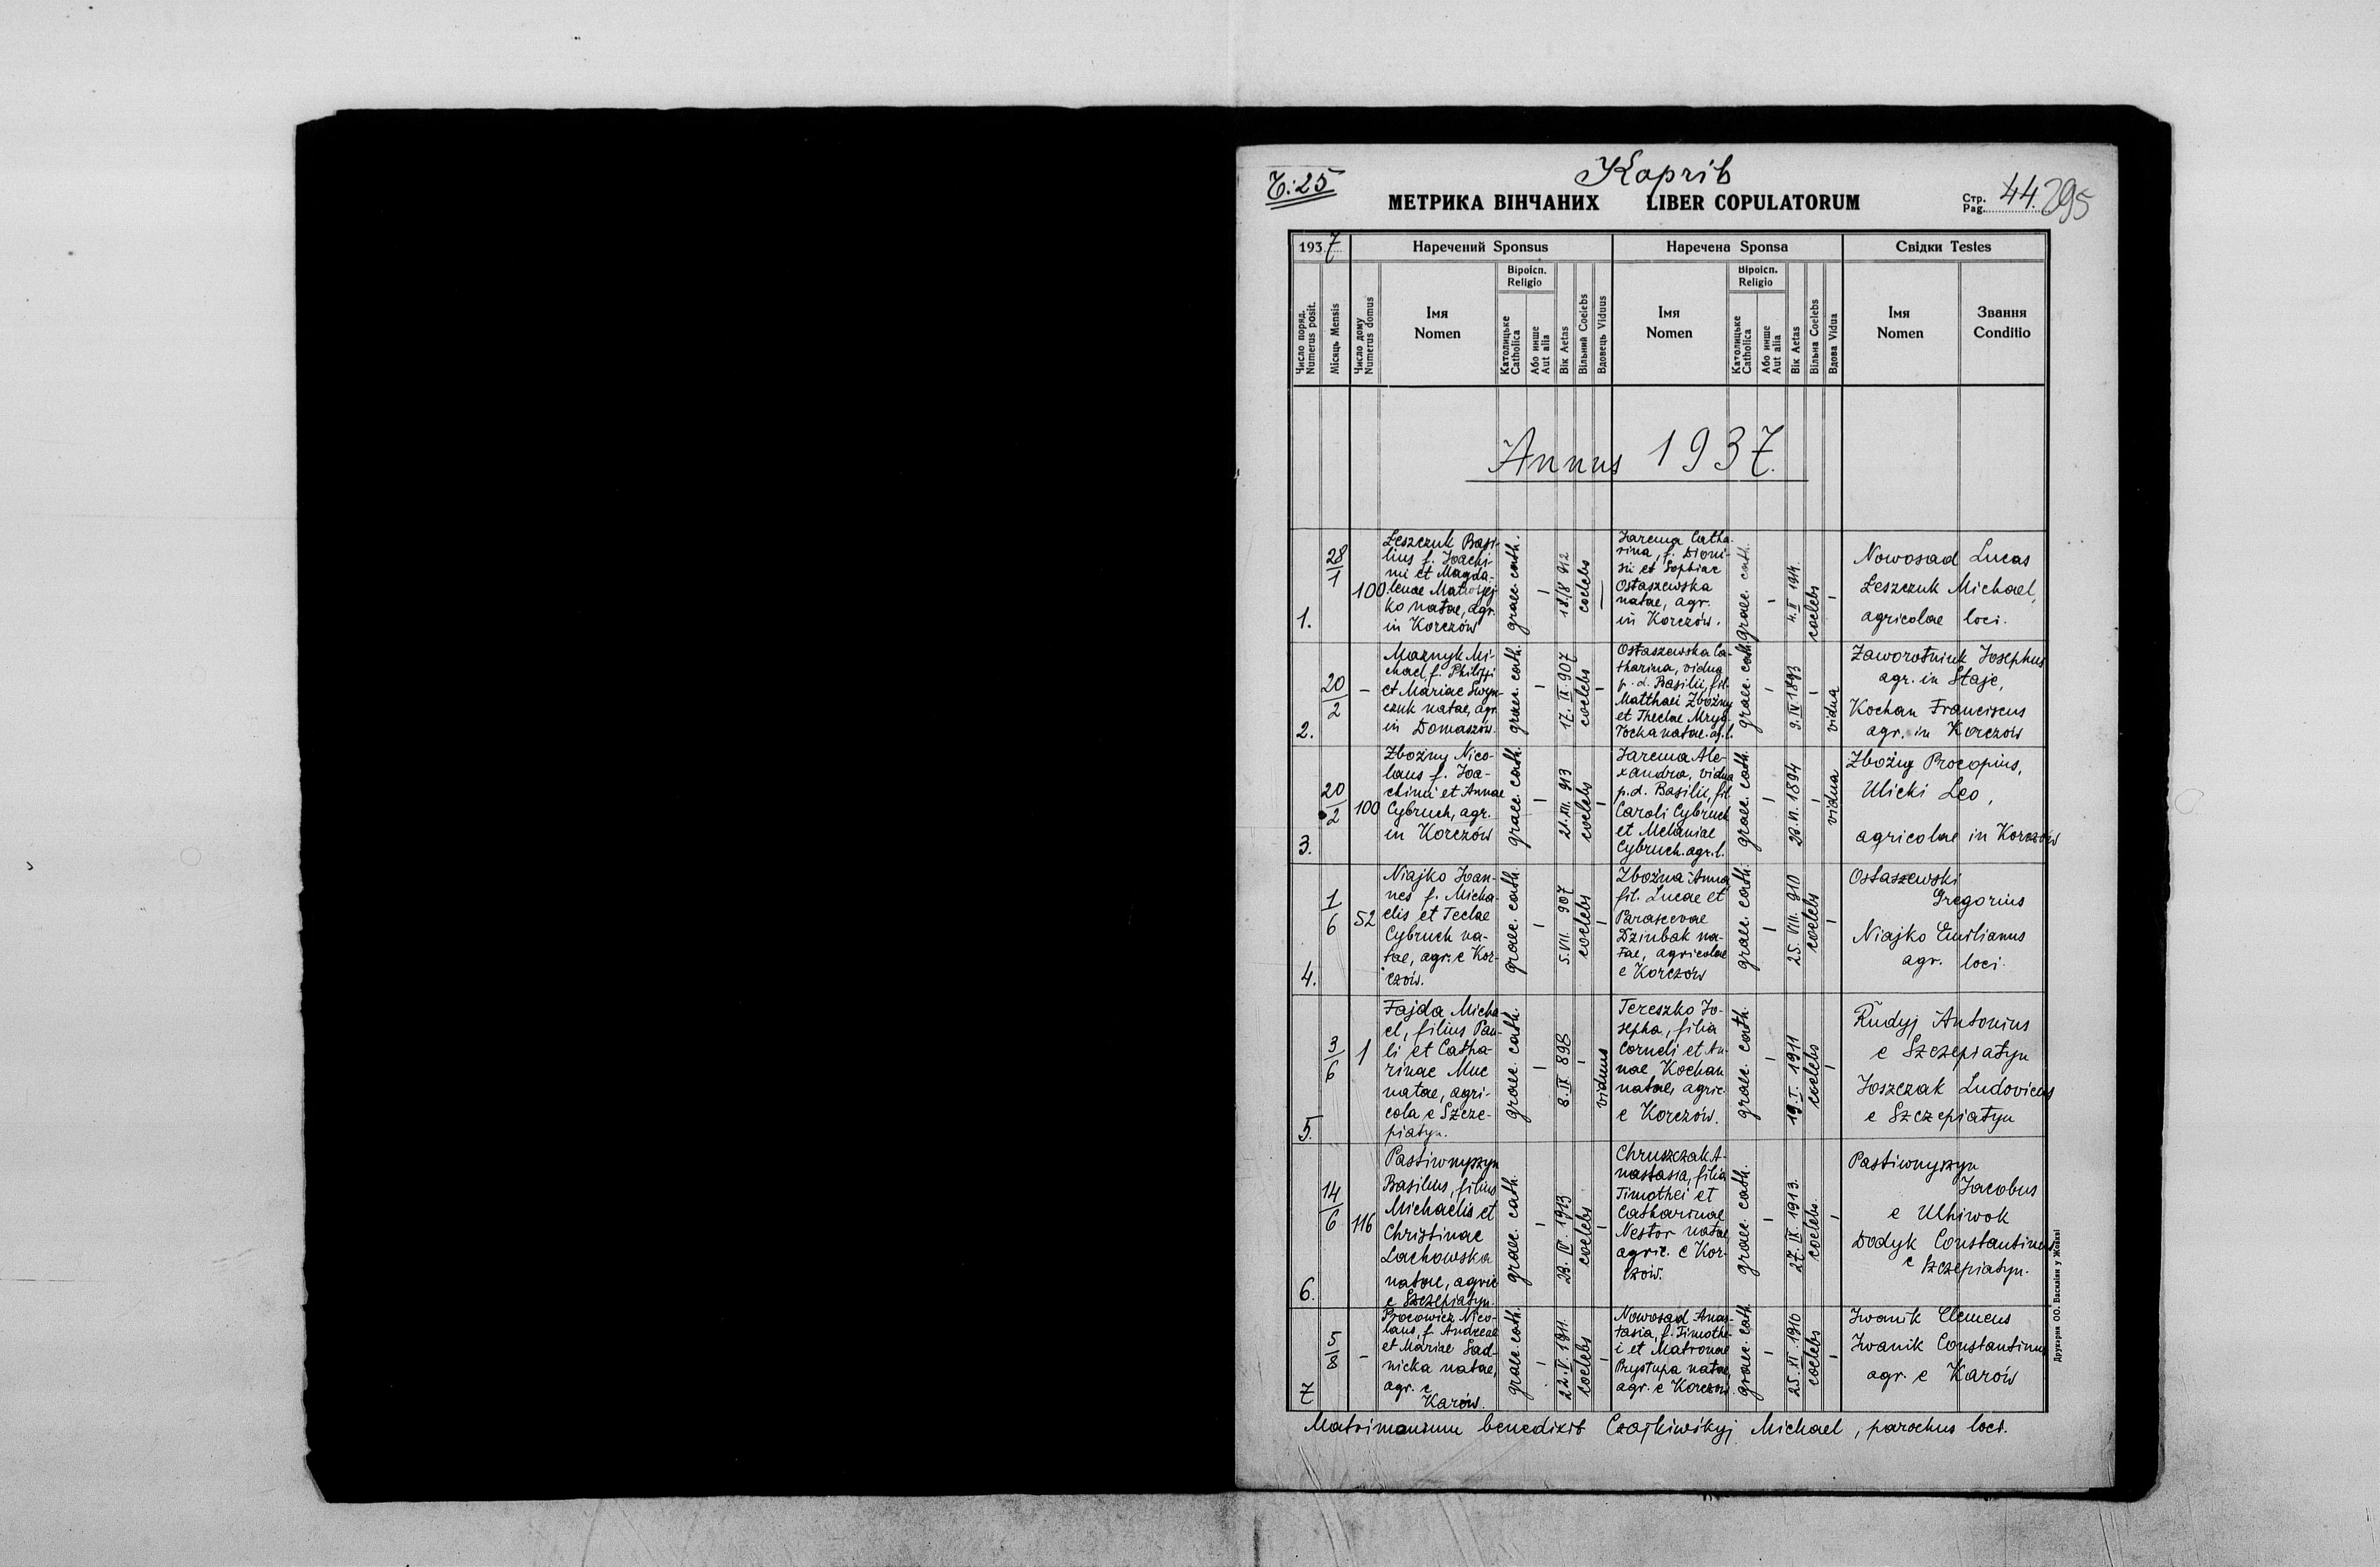 Č: 25
Корчів
МЕТРИКА ВІНЧАНИХ LIBER COPULATORUM
Стр. Pag. 44. 295
1937 Наречений Sponsus Наречена Sponsa Свідки Testes
Число поряд. Numerus posit.
Місяць Mensis
Число дому Numerus domus
Імя Nomen
Віроісп. Religio
Католицьке Catholica
Або инше Aut alia
Вік Aetas
Вільний Coelebs
Вдовець Viduus
Імя Nomen
Віроісп. Religio
Католицьке Catholica
Або инше Aut alia
Вік Aetas
Вільна Coelebs
Вдова Vidua
Імя Nomen
Звання Conditio
Annus 1937.
1.
28/1
100
Leszczuk Basi-
lius f. Joachi-
mi et Magda-
lenae
ko natae, agr.
in Korczów
graec. cath.
18/8 912
coelebs
Jarema Catha-
rina, f. Dioni-
sii et Sophiae
Ostaszewska
natae, agr.
in Korczów.
graec. cath.
4. II 1914.
coelebs
Nowosad Lucas
Leszczuk Michael,
agricolae loci.
2.
20/2
-
Maznyk Mi-
chael, f. Philippi
et Mariae
czuk natae, agr.
in Domaszów
graec. cath.
17. IX 907
coelebs
Ostaszewska Ca-
tharina, vidua
p. d. Basilii, fil.
Matthaei Zbożny
et Theclae Mryg-
łocka natae. ag. l.
graec. cath.
9. IV 1893
vidua
Zaworotniuk Josephus
agr. in Staje,
Kochan Franciscus
agr. in Korczów
3.
20/2
100
Zbożny Nico-
laus f. Joa-
chimi et Annae
Cybruch, agr.
in Korczów
graec. cath.
21. XII. 913
coelebs
Jarema Ale-
xandra, vidua
p. d. Basilii, fil.
Caroli Cybruch
et Melaniae
Cybruch. agr. l.
graec. cath.
23. VI. 1894
vidua
Zbożny Procopius,
Ulicki Leo,
agricolae in Korczów
4.
1/6
52
Niajko Joan-
nes f. Micha-
elis et Teclae
Cybruch na-
tae, agr. e Kor-
czów.
graec. cath.
5. VII. 907
coelebs
Zbożna Anna
fil. Lucae et
Parascevae
Dziubak na-
tae, agricolae
e Korczów
graec. cath.
25. VIII. 910
coelebs
Ostaszewski
Gregorius
Niajko Emilianus
agr. loci.
5.
3/6
1
Fajda Micha-
el, filius Pau-
li et Catha-
rinae Muc
natae, agri-
cola e Szcze-
piatyn.
graec. cath.
8. IX 898
viduus
Tereszko Jo-
sepha, filia
Corneli et An-
nae Kochan
natae, agric.
e Korczów.
graec. cath.
19. I. 1911
coelebs
Rudyj Antonius
e Szczepiatyn
Joszczak Ludovicus
e Szczepiatyn
6.
14/6
116
Pastiwnyszyn
Basilius, filius
Michaelis et
Christinae
Lachowska
natae, agric
e Szczepiatyn.
graec. cath.
23. IV. 1913
coelebs
Chruszczak A-
nastasia, filia
Timothei et
Catharinae
Nestor natae,
agric. e Kor-
czów.
graec. cath.
27. IX. 1913.
coelebs.
Pastiwnyszyn
Jacobus
e Uhniwok
Dodyk Constantinus
e Szczepiatyn.
7
5/8
-
Procowicz Nico-
laus, f. Andreae
et Mariae Sad-
nicka natae,
agr. e
Karów.
graec. cath.
22. V. 1911.
coelebs
Nowosad Anas-
tasia, f. Timothe-
i et Matronae
Prystupa natae,
agr. e Korczów.
graec. cath.
25. XI. 1910
coelebs
Iwanik Clemens
Iwanik Constantinus
agr. e Karów
Matrimonium benedixit Czajkiwśkyj Michael, parochus loci.
Друкарня ОО. Василіян у Жовкві